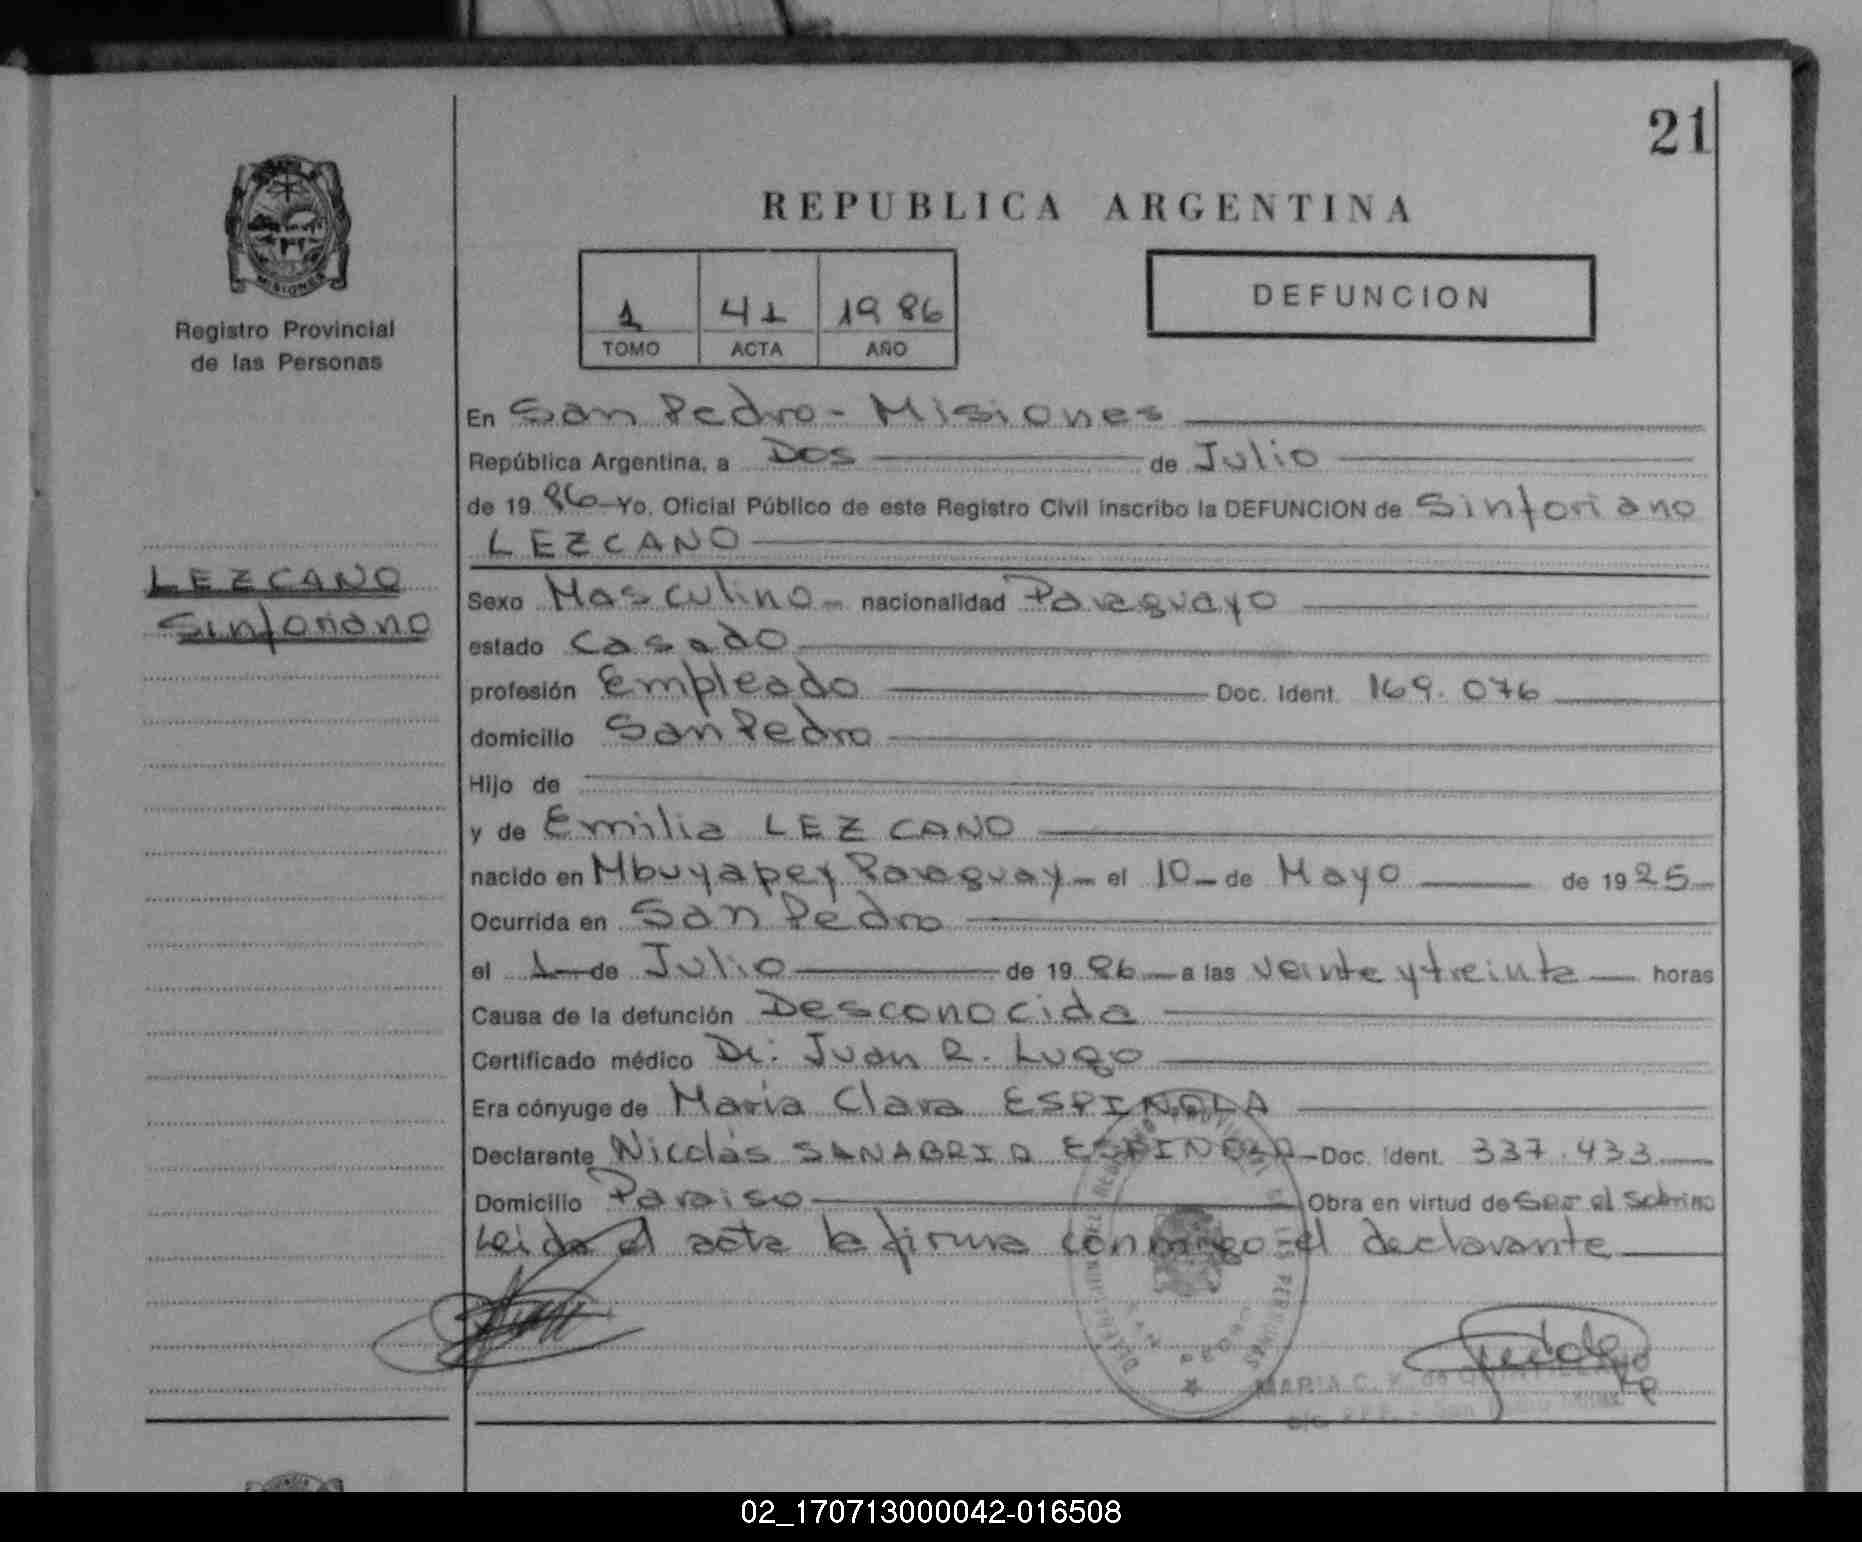 21
REPUBLICA ARGENTINA
MISIONES
Registro Provincial
de las Personas
1 41 1986
TOMO ACTA AÑO
DEFUNCION
LEZCANO
Sinforiano
En San Pedro - Misiones
República Argentina, a Dos de Julio
de 19 86 Yo, Oficial Público de este Registro Civil inscribo la DEFUNCION de Sinforiano
LEZCANO
Sexo Masculino nacionalidad Paraguayo
estado Casado
profesión Empleado Doc. Ident. 169.076
domicilio San Pedro
Hijo de
y de Emilia LEZCANO
nacido en Mbuyapey Paraguay el 10 de Mayo de 1925
Ocurrida en San Pedro
el 1 de Julio de 19 86 a las veinte y treinta horas
Causa de la defunción Desconocida
Certificado médico Dr. Juan R. Lugo
Era cónyuge de María Clara ESPINOLA
Declarante Nicolás SANABRIA ESPINOLA Doc. Ident. 337.433
Domicilio Paraiso Obra en virtud de ser el sobrino
Leida el acta la firma conmigo el declarante
MARIA C. V. de
San Pedro
02_170713000042-016508